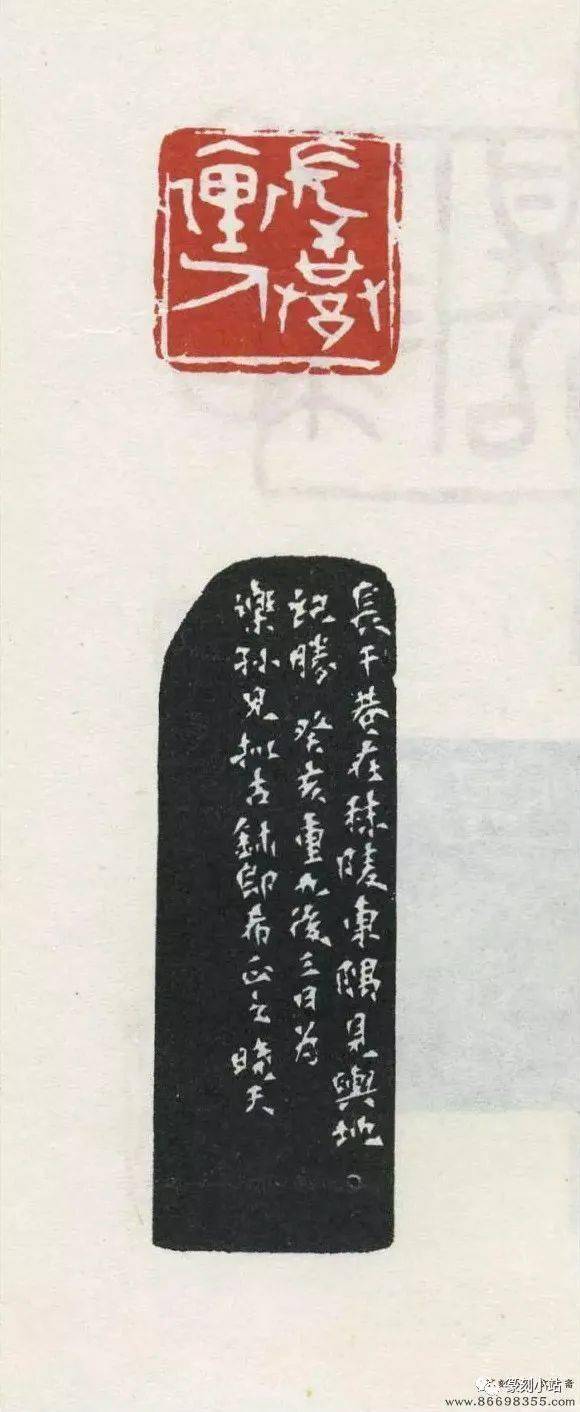 長干巷在秣陵東隅見輿地
記勝 癸亥重九後三日为
樂孙兄拟古鉨即希正之 曉天
篆刻小站
www.86698355.com